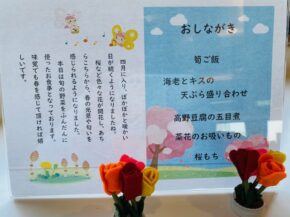 四月に入り、ぽかぽかと暖かい
日が続くようになりましたね。
桜など色々な花が開花し、あち
らこちらから、春の光景や匂いを
感じられるようになりました。
本日は旬の野菜をふんだんに
使ったお食事となっております。
味覚でも春を感じて頂ければ嬉
しいです。
おしながき
筍ご飯
海老とキスの
天ぷら盛り合わせ
高野豆腐の五目煮
菜花のお吸いもの
桜もち